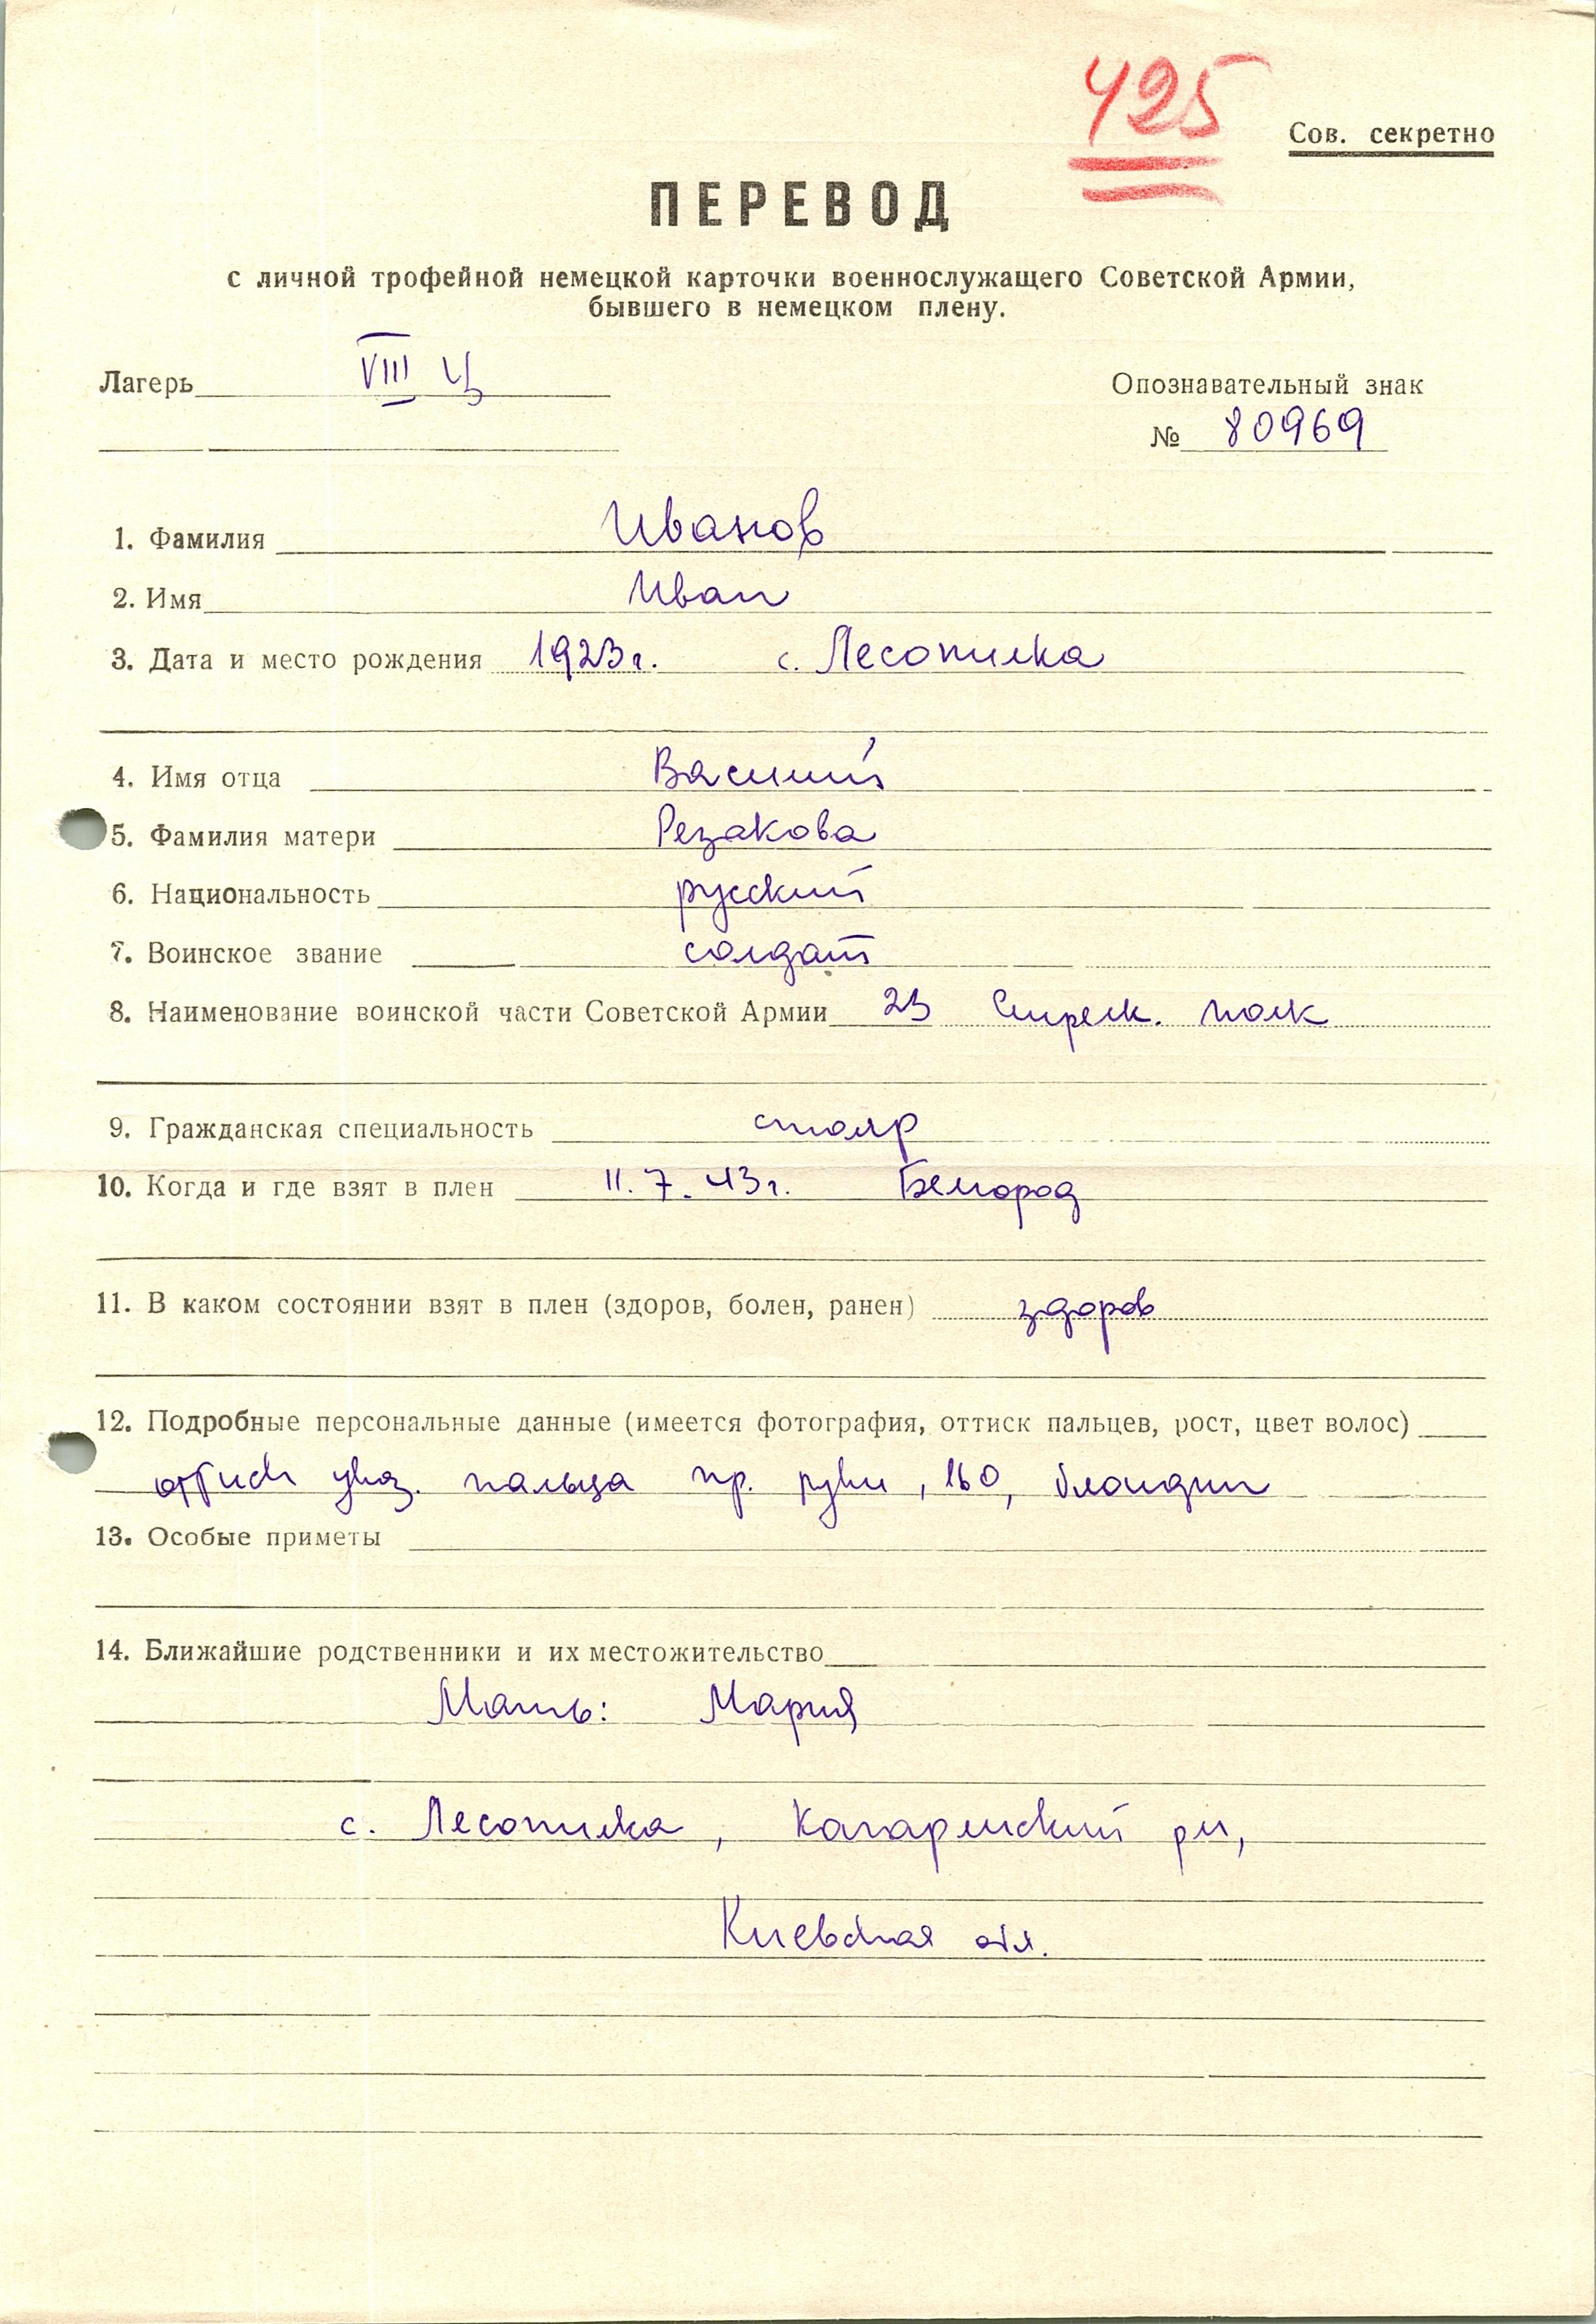 425
Сов. секретно
ПЕРЕВОД
с личной трофейной немецкой карточки военнослужащего Советской Армии,
бывшего в немецком плену.
Лагерь VIII Ц
Опознавательный знак
№ 80969
1. Фамилия Иванов
2. Имя Иван
3. Дата и место рождения 1923г. с. Лесопилка
4. Имя отца Василий
5. Фамилия матери Резакова
6. Национальность русский
7. Воинское звание солдат
8. Наименование воинской части Советской Армии 23 Стрелк. полк
9. Гражданская специальность столяр
10. Когда и где взят в плен 11.7.43г. Белгород
11. В каком состоянии взят в плен (здоров, болен, ранен) здоров
12. Подробные персональные данные (имеется фотография, оттиск пальцев, рост, цвет волос)
оттиск указ. пальца пр. руки, 160, блондин
13. Особые приметы
14. Ближайшие родственники и их местожительство
Мать: Мария
с. Лесопилка, рн,
Киевская обл.